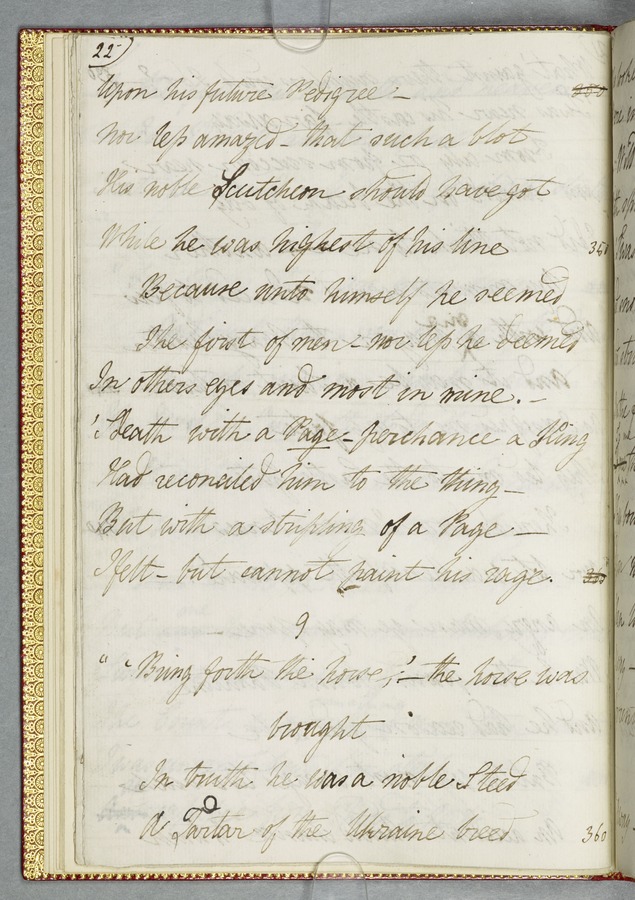 22
Upon his future Pedigree –
Nor less amazed – that such a blot
His noble Scutcheon should have got
While he was highest of his line 350
Because unto himself he seemed
The first of men – nor less he deemed
In others eyes and most in mine. –
'Sdeath with a Page – perchance a King
Had reconciled him to the thing –
But with a stripling of a Page –
I felt – but cannot paint his rage.
9
" 'Bring forth the horse,' – the horse was
brought
In truth he was a noble Steed
A Tartar of the Ukraine breed 360